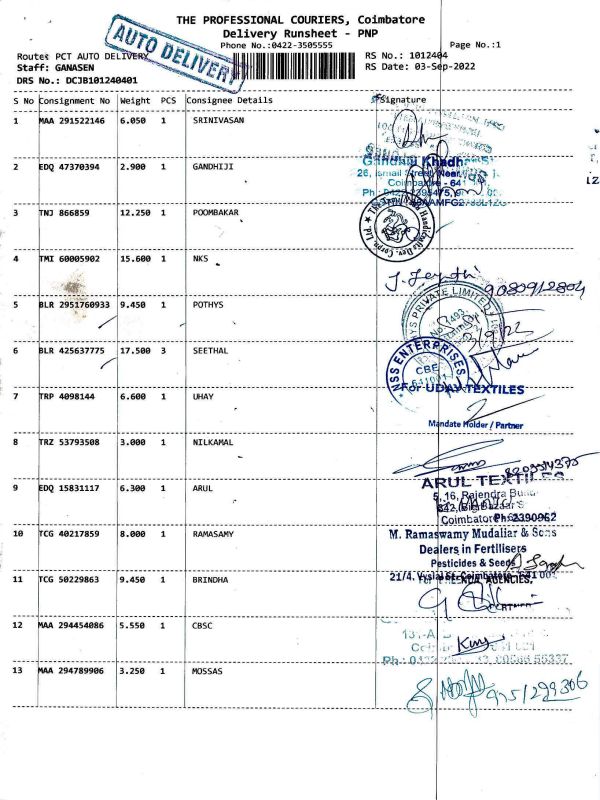 THE PROFESSIONAL COURIERS, Coimbatore
Delivery Runsheet - PNP
Phone No.:0422-3505555
Page No.:1
AUTO DELIVERY
Route: PCT AUTO DELIVERY
RS No.: 1012404
Staff: GANASEN
RS Date: 03-Sep-2022
DRS No.: DCJB101240401
S No Consignment No Weight PCS Consignee Details Signature
1 MAA 291522146 6.050 1 SRINIVASAN
2 EDQ 47370394 2.900 1 GANDHIJI
Gandhiji Khadhar
26, Ismail Street, Near
Coimbatore - 641
3 TNJ 866859 12.250 1 POOMBAKAR
4 TMI 60005902 15.600 1 NKS
9080912804
5 BLR 2951760933 9.450 1 POTHYS
PRIVATE LIMITED
3/9/22
6 BLR 425637775 17.500 3 SEETHAL
NSS ENTERPRISES
CBE
641001
For UDAY TEXTILES
7 TRP 4098144 6.600 1 UHAY
Mandate Holder / Partner
8 TRZ 53793508 3.000 1 NILKAMAL
ARUL TEXTILES
9 EDQ 15831117 6.300 1 ARUL
5, 16, Rajendra
Coimbatore Ph: 2390962
10 TCG 40217859 8.000 1 RAMASAMY
M. Ramaswamy Mudaliar & Sons
Dealers in Fertilisers
Pesticides & Seeds
11 TCG 50229863 9.450 1 BRINDHA
21/4, Vysial St, Coimbatore - 641 001
AGENCIES,
12 MAA 294454086 5.550 1 CBSC
13 MAA 294789906 3.250 1 MOSSAS